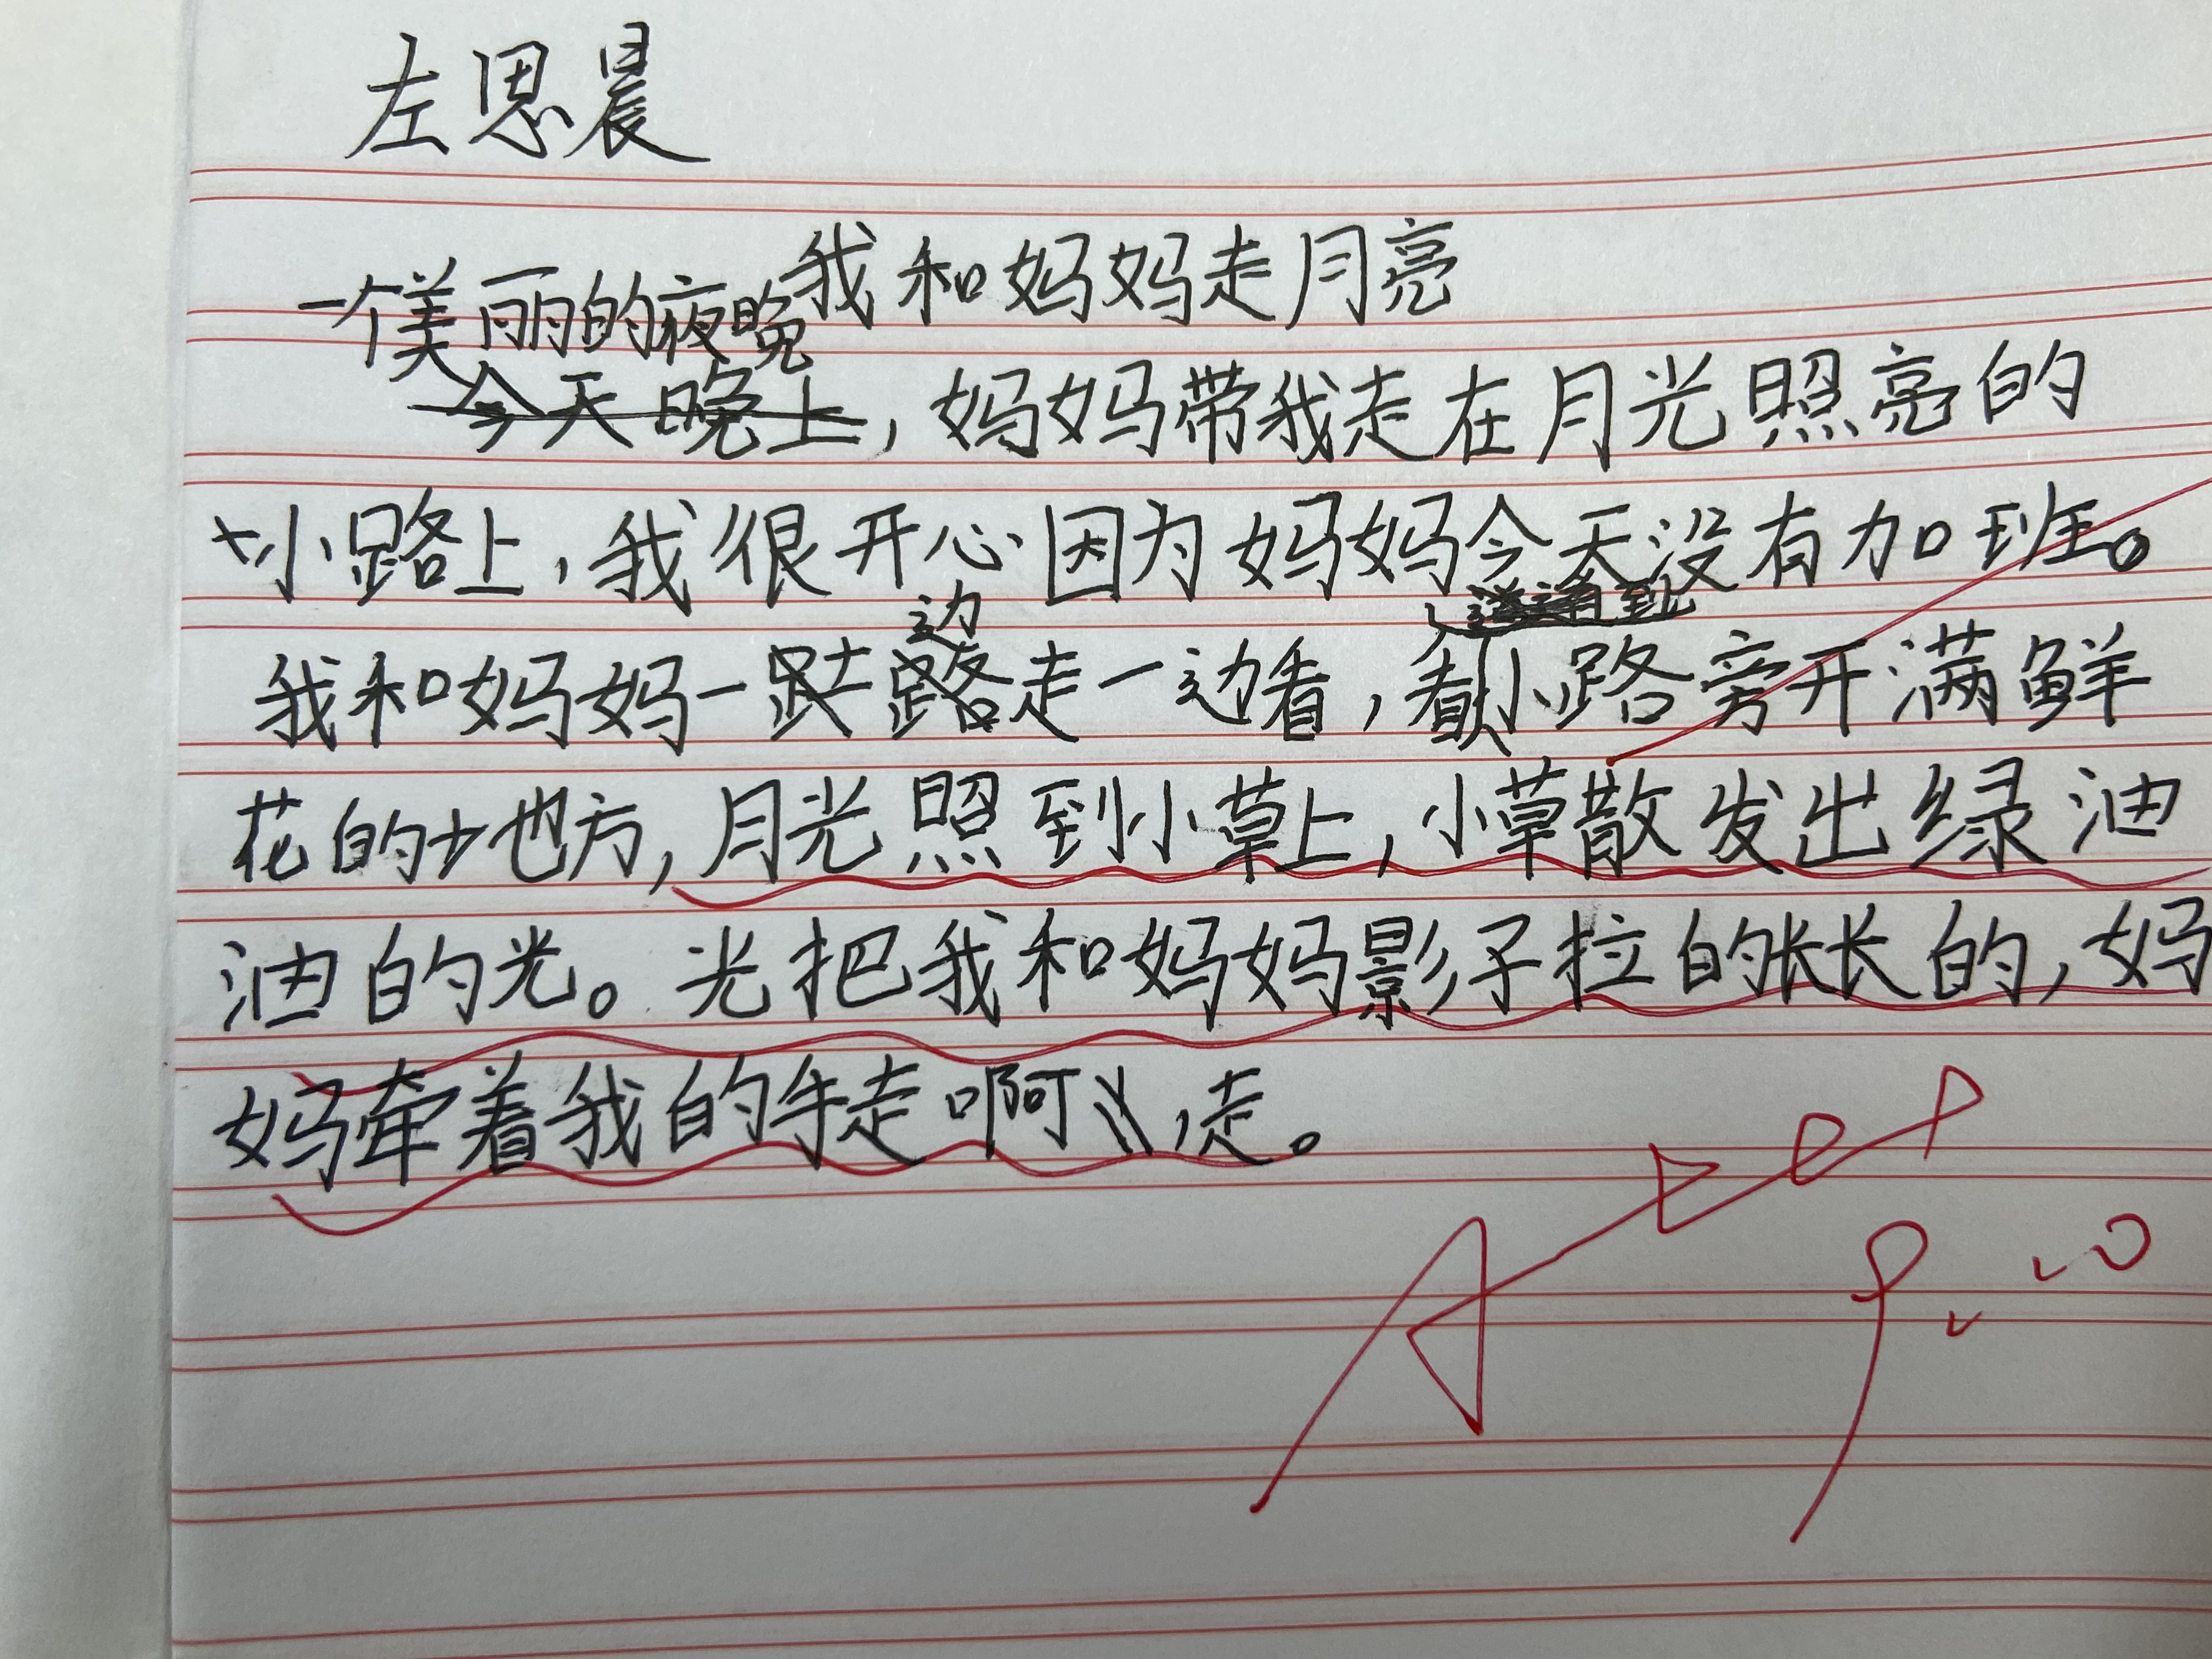 左思晨
我和妈妈走月亮
一个美丽的夜晚
今天晚上，妈妈带我走在月光照亮的
小路上，我很开心因为妈妈今天没有加班。
边
我和妈妈一路走一边看，看小路旁开满鲜
花的地方，月光照到小草上，小草散发出绿油
油的光。光把我和妈妈影子拉的长长的，妈
妈牵着我的手走啊，走。